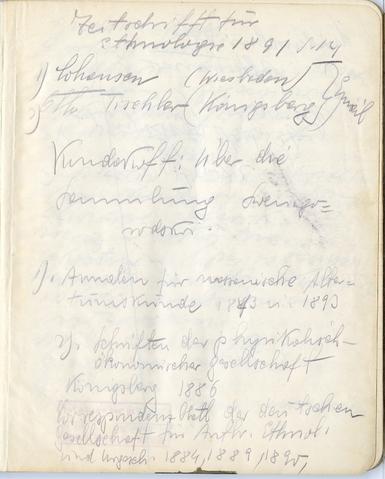 Zeitschrift für
Ethnologie 1891 S. 14
1) Cohausen (Wiesbaden)
2) Otto Tischler (Königsberg) Email
Kondakoff: Über die
Sammlung Swenigo=
rodskoi.
1). Annalen für nassauische Alter-
tumskunde 1873 u. 1893
2). Schriften der physikalisch-
ökonomischer Gesellschaft
Königsberg 1886
Korrespondenz Blatt der deutschen
Gesellschaft für Anthr. Ethnol.
und Urgesch. 1884, 1889, 1890,